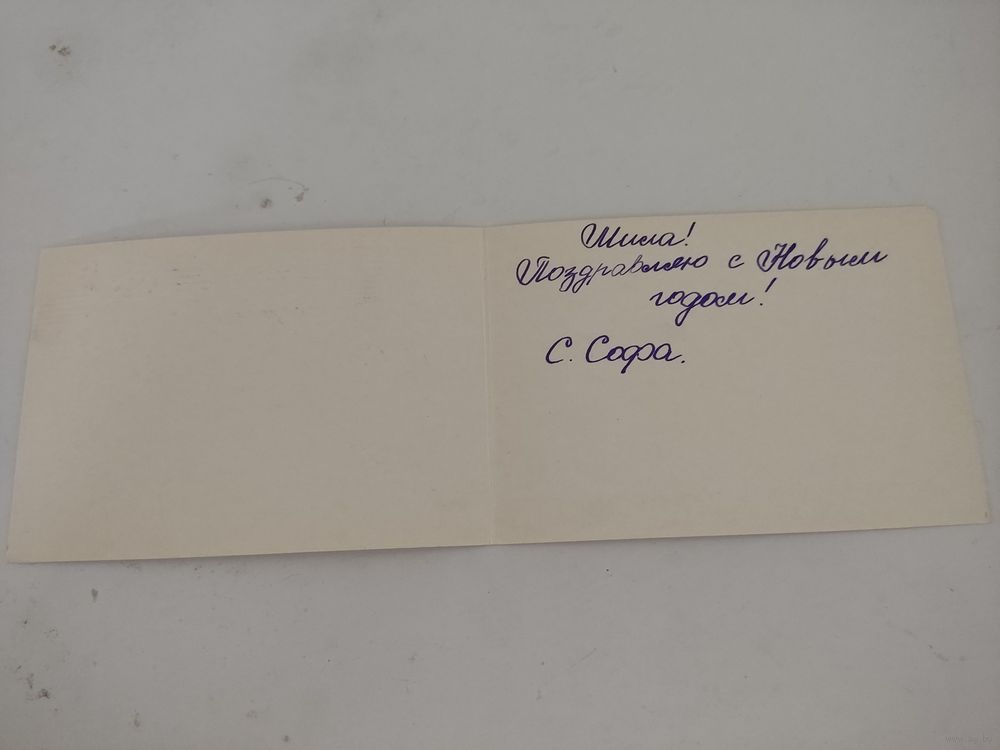 Мила!
Поздравляю с Новым
годом!
С. Софа.